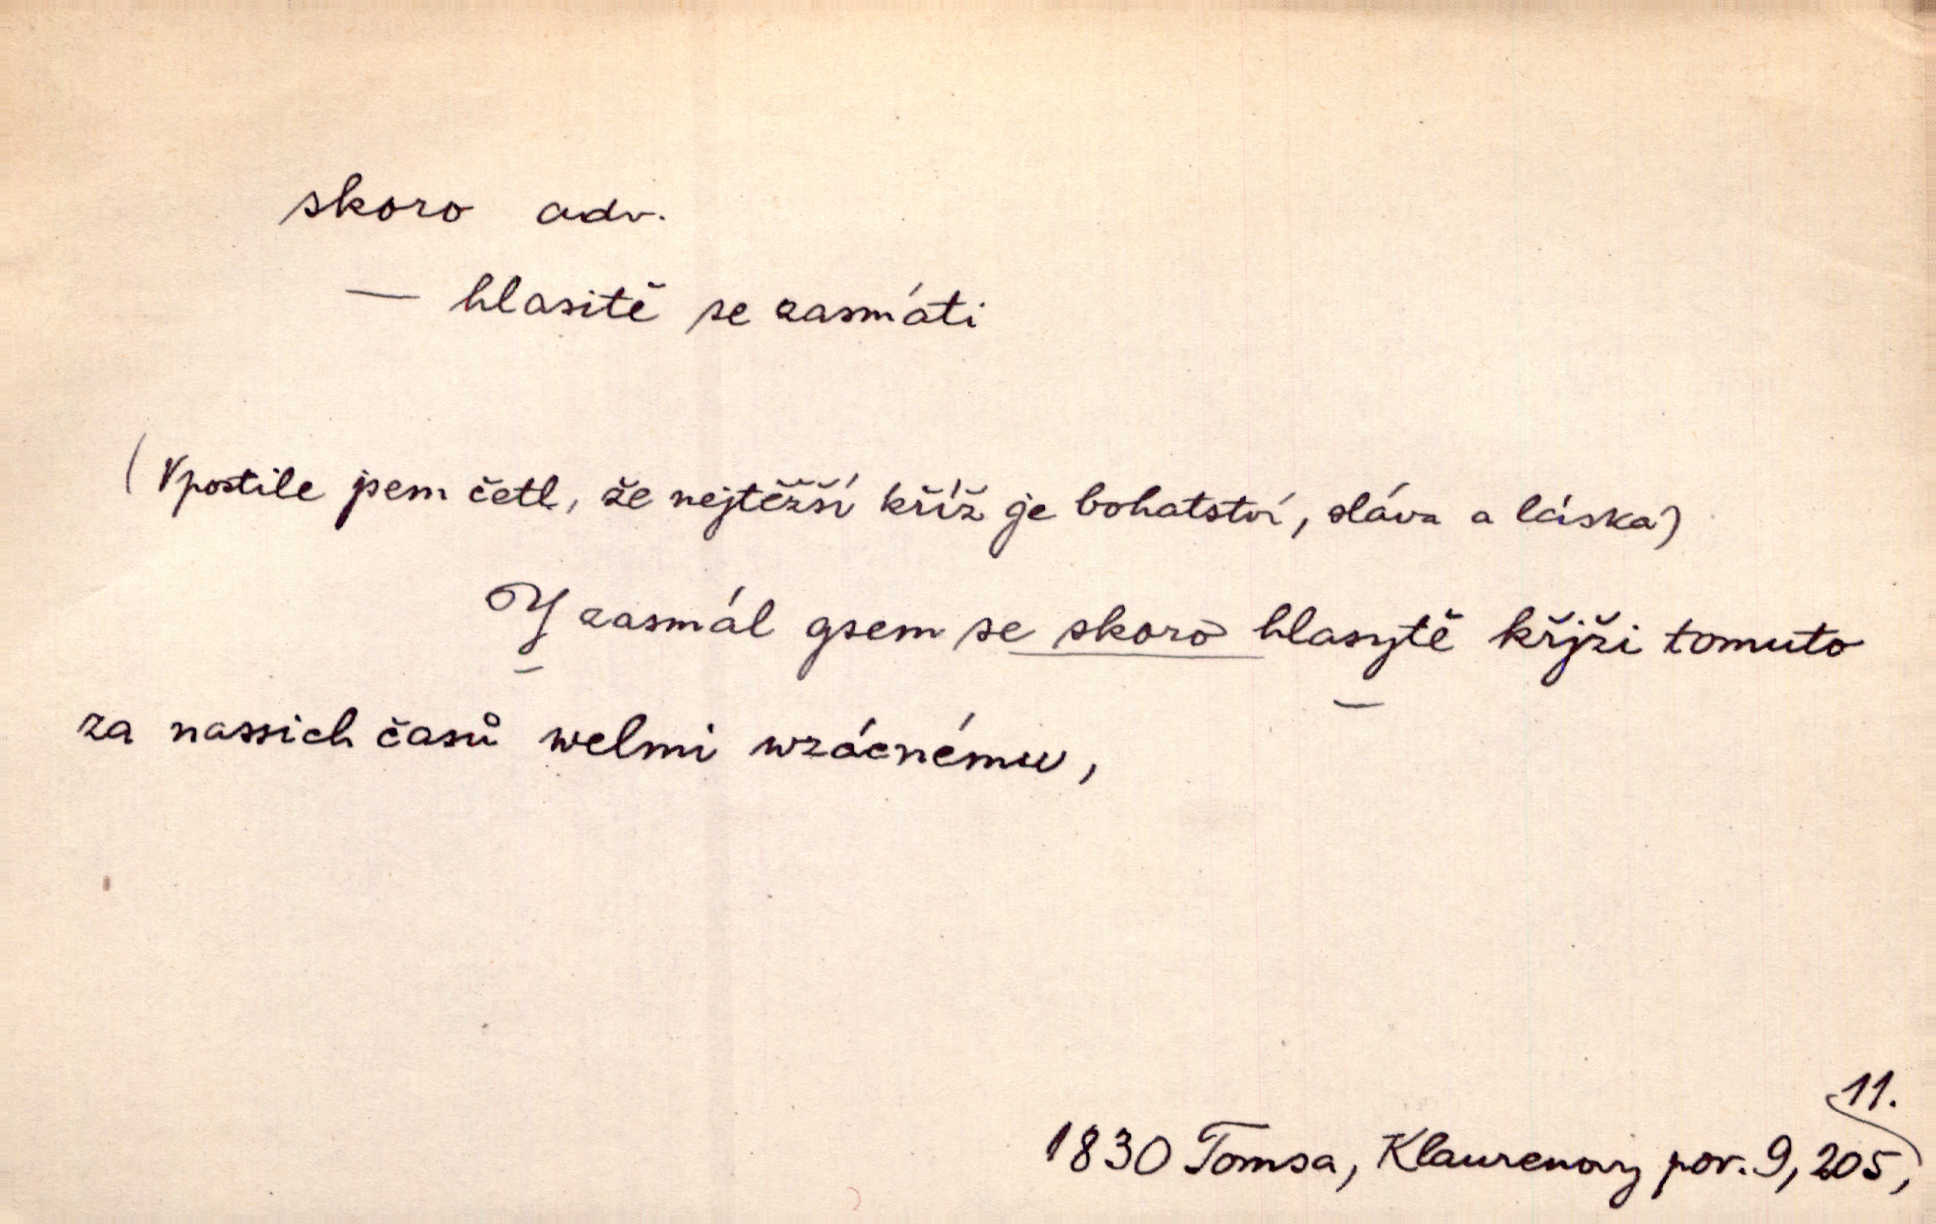 skoro adv.
— hlasitě se zasmáti
(V postile jsem četl, že nejtěžší kříž je bohatství, sláva a láska)
Y zasmál gsem se skoro hlasytě křjži tomuto
za nassich časů welmi wzácnému,
11.
1830 Tomsa, Klaurenovy pov. 9, 205,